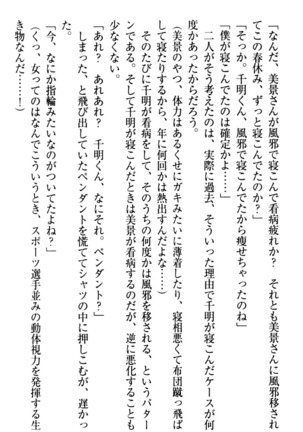 「なんだ、美景さんが風邪で寝こんで看病疲れか？　それとも美景さんに風邪移され
てこの春休み、ずっと寝こんでたのか？」
「そっか。千明くん、風邪で寝こんでたから痩せちゃったのね」
「僕が寝こんでたのは確定かよ……」
　二人がそう考えたのは、実際に過去、そういった理由で千明が寝こんだケースが何
度かあったからだろう。
（美景のやつ、体力はあるくせにガキみたいに薄着したり、寝相悪くて布団蹴っ飛ば
して寝たりするから、年に何回かは熱出すんだよな……）
　そのたびに千明が看病をして、そのうちの何度かは風邪を移される、というパター
ンである。そして千明が寝こんだときは美景が看病するのだが、逆に悪化することも
少なくない。
「あれ？　あれあれ？　千明くん、なにそれ。ペンダント？」
　しまった、と飛び出していたペンダントを慌ててシャツの中に押しこむが、遅かっ
た。
「今、なにか指輪みたいなのがついてたよね？」
（くっ、女ってのはなんでこういうとき、スポーツ選手並みの動体視力を発揮する生
き物なんだ……！）